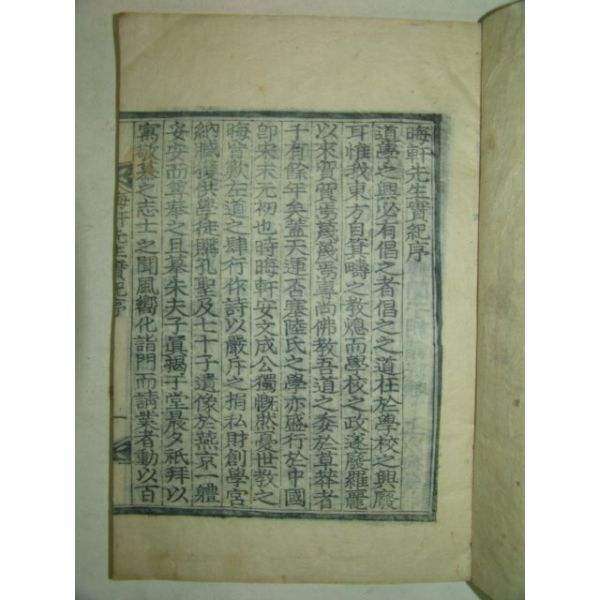 晦軒先生實紀序
道學之興必有倡之者倡之之道在於學校之興廢
耳惟我東方自箕疇之教熄而學校之政遂廢羅麗
以來貿貿焉蔑蔑焉專尚佛教吾道之委於草莽者
千有餘年矣蓋天運否塞陸氏之學亦盛行於中國
即宋末元初也時晦軒安文成公獨慨然憂世教之
晦盲歎左道之肆行作詩以嚴斥之捐私財創學宮
納臧獲供學徒購孔聖及七十子遺像於燕京一體
妥安而尊奉之且慕朱夫子眞揭子堂晨夕祇拜以
寓敬慕之志士之聞風嚮化詣門而請業者動以百
晦軒先生實紀序
一